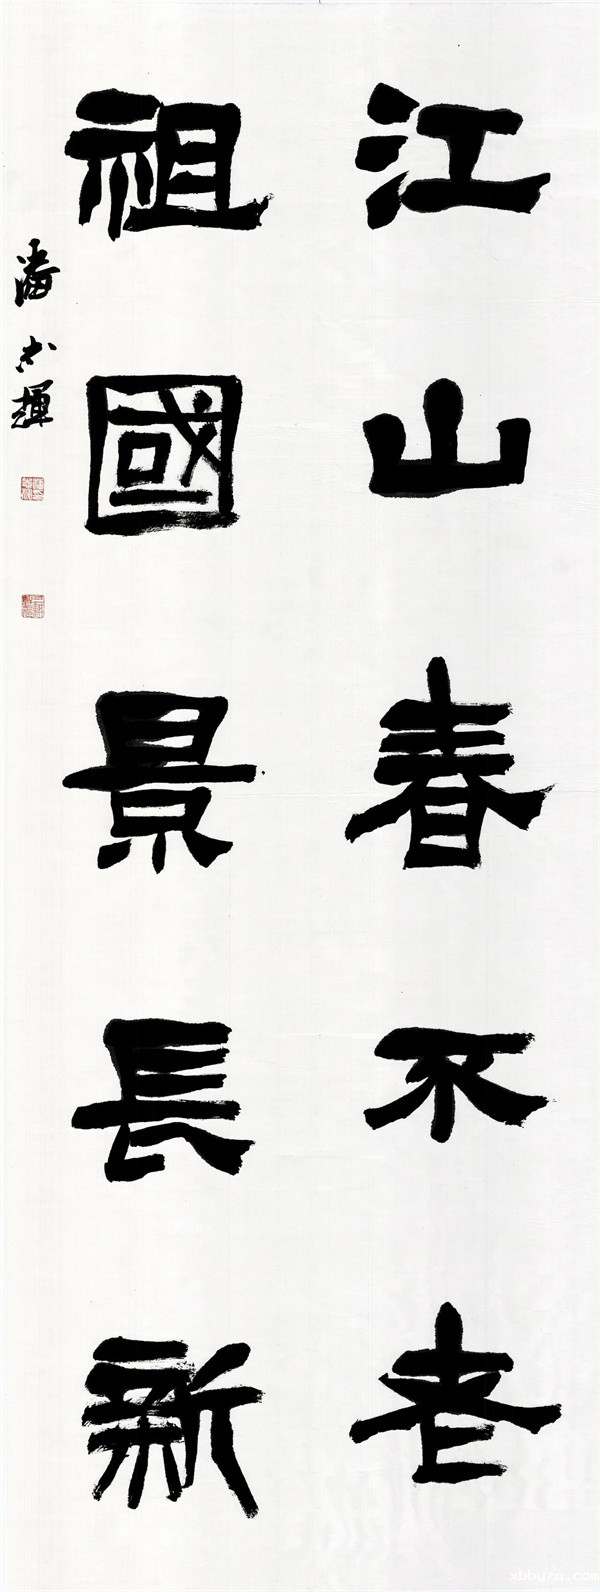 江山春不老
祖國景長新
潘志輝
xbbyzq.com